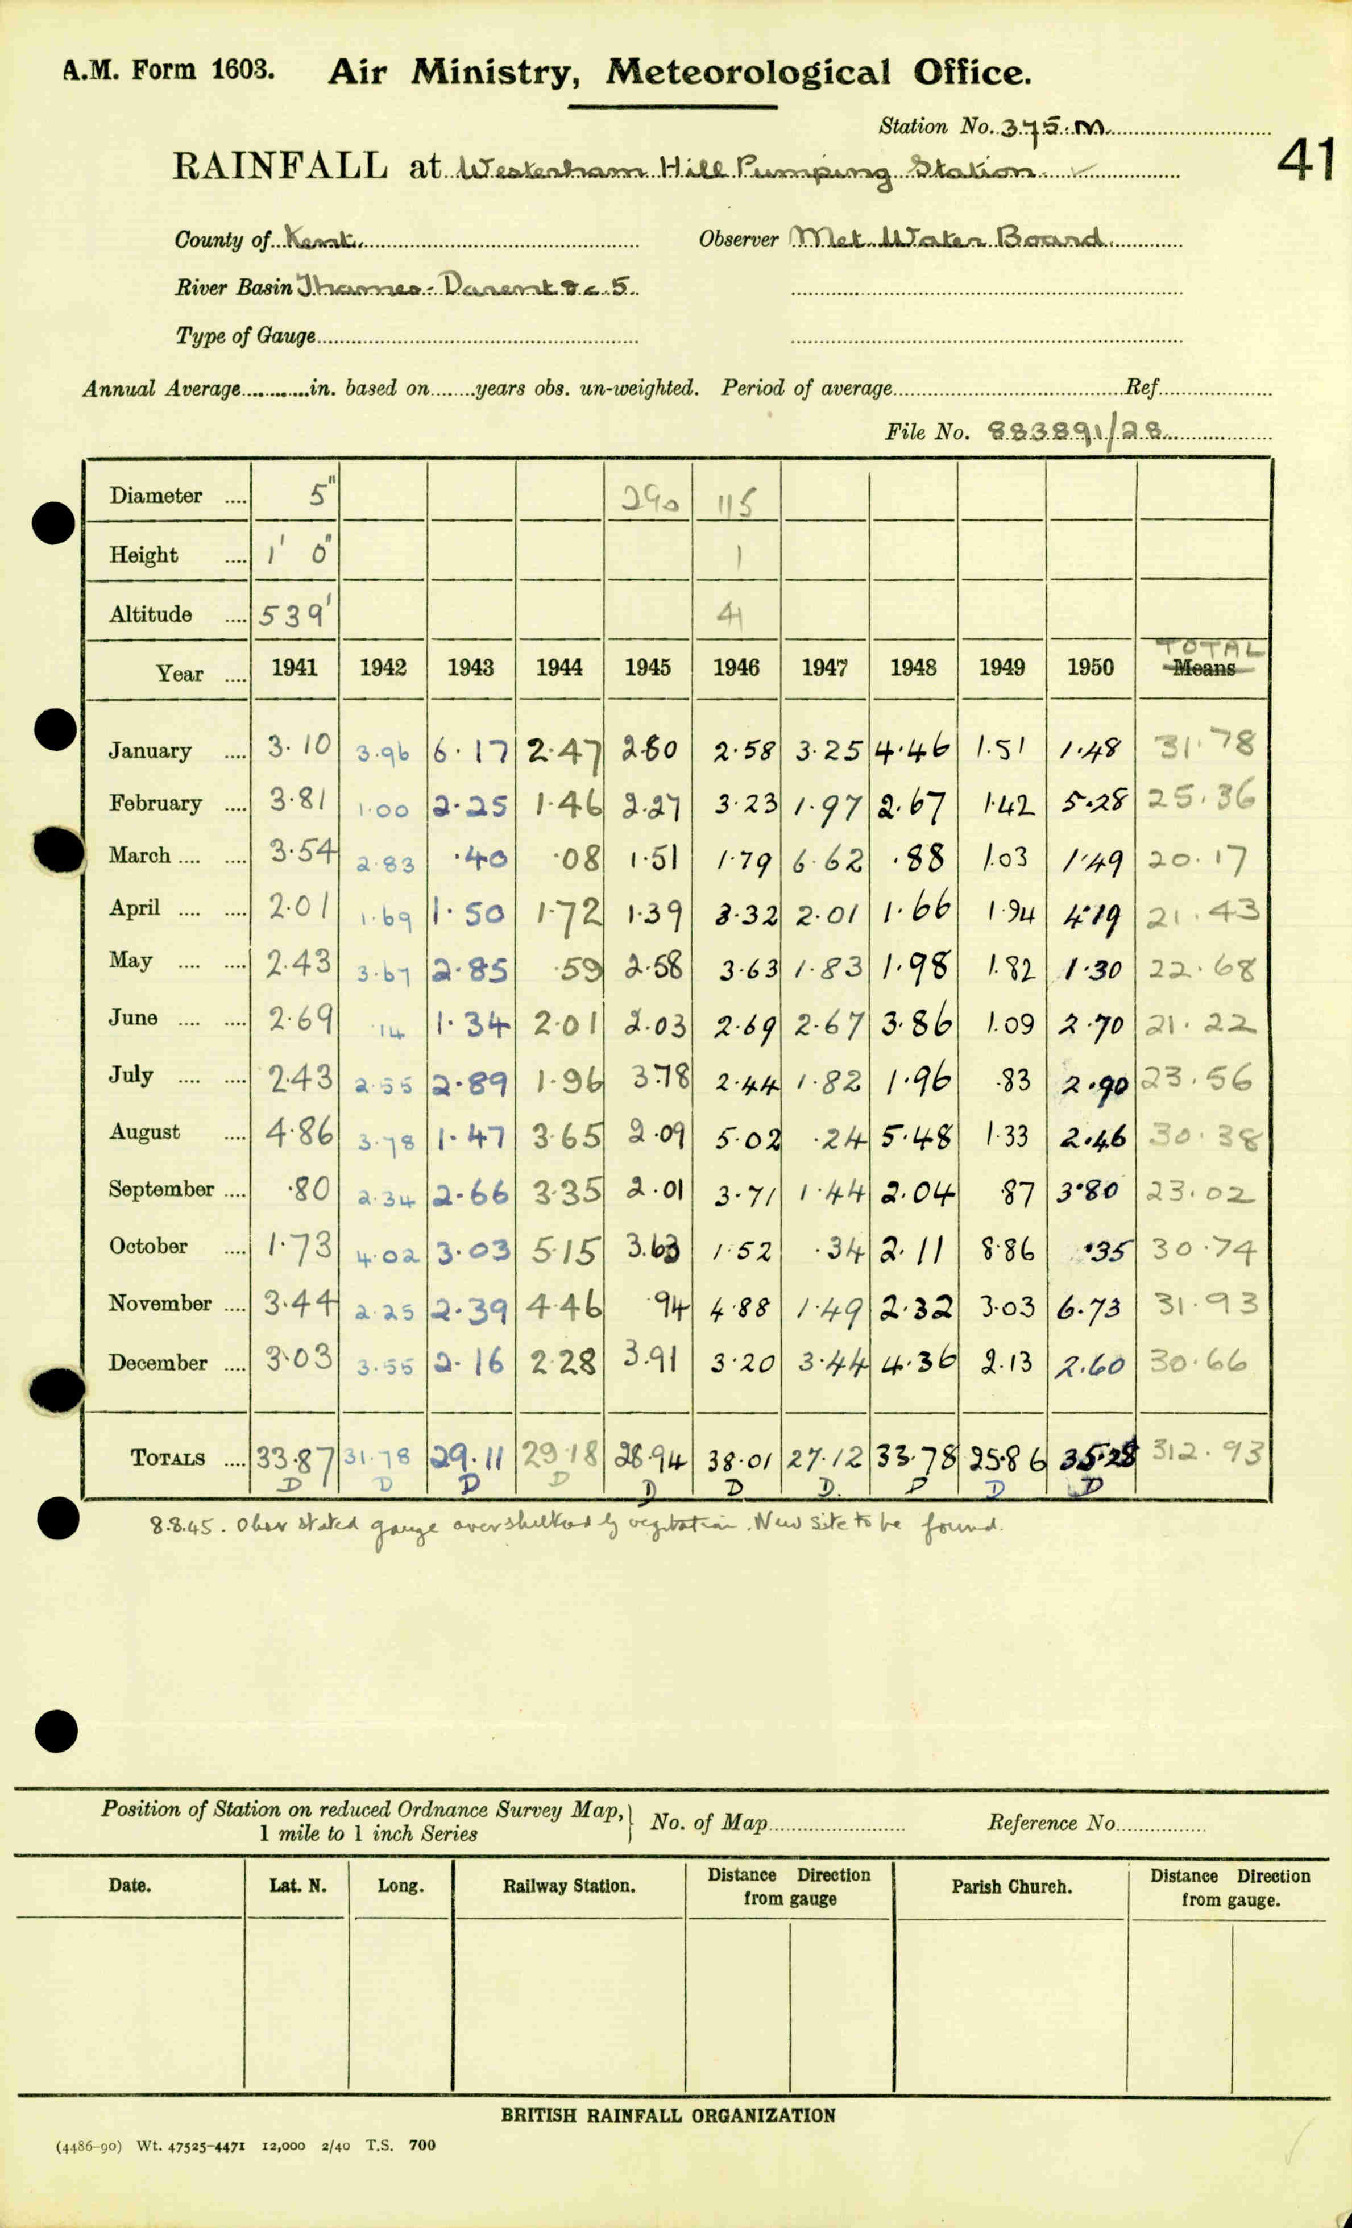 A.M. Form 1603. Air Ministry, Meteorological Office.
Station No. 375.M
41
RAINFALL at Westerham Hill Pumping Station ✓
County of Kent. Observer Met. Water Board.
River Basin Thames - Darent &c. 5.
Type of Gauge
Annual Average in. based on years obs. un-weighted. Period of average Ref.
File No. 883891/28
Diameter 5" 290 115
Height 1' 0" 1
Altitude 539' 41
TOTAL
Year 1941 1942 1943 1944 1945 1946 1947 1948 1949 1950 Means
January 3.10 3.96 6.17 2.47 2.80 2.58 3.25 4.46 1.51 1.48 31.78
February 3.81 1.00 2.25 1.46 2.27 3.23 1.97 2.67 1.42 5.28 25.36
March 3.54 2.83 .40 .08 1.51 1.79 6.62 .88 1.03 1.49 20.17
April 2.01 1.69 1.50 1.72 1.39 3.32 2.01 1.66 1.94 4.19 21.43
May 2.43 3.67 2.85 .59 2.58 3.63 1.83 1.98 1.82 1.30 22.68
June 2.69 .14 1.34 2.01 2.03 2.69 2.67 3.86 1.09 2.70 21.22
July 2.43 2.55 2.89 1.96 3.78 2.44 1.82 1.96 .83 2.90 23.56
August 4.86 3.78 1.47 3.65 2.09 5.02 .24 5.48 1.33 2.46 30.38
September .80 2.34 2.66 3.35 2.01 3.71 1.44 2.04 .87 3.80 23.02
October 1.73 4.02 3.03 5.15 3.63 1.52 .34 2.11 8.86 .35 30.74
November 3.44 2.25 2.39 4.46 .94 4.88 1.49 2.32 3.03 6.73 31.93
December 3.03 3.55 2.16 2.28 3.91 3.20 3.44 4.36 2.13 2.60 30.66
TOTALS 33.87 31.78 29.11 29.18 28.94 38.01 27.12 33.78 25.86 35.28 312.93
D D D D D D D. D D D
8.8.45. Obsr stated gauge oversheltered by vegetation. New site to be found.
Position of Station on reduced Ordnance Survey Map, 1 mile to 1 inch Series } No. of Map Reference No.
Date. Lat. N. Long. Railway Station. Distance Direction from gauge Parish Church. Distance Direction from gauge.
BRITISH RAINFALL ORGANIZATION
(4486-90) Wt. 47525-4471 12,000 2/40 T.S. 700